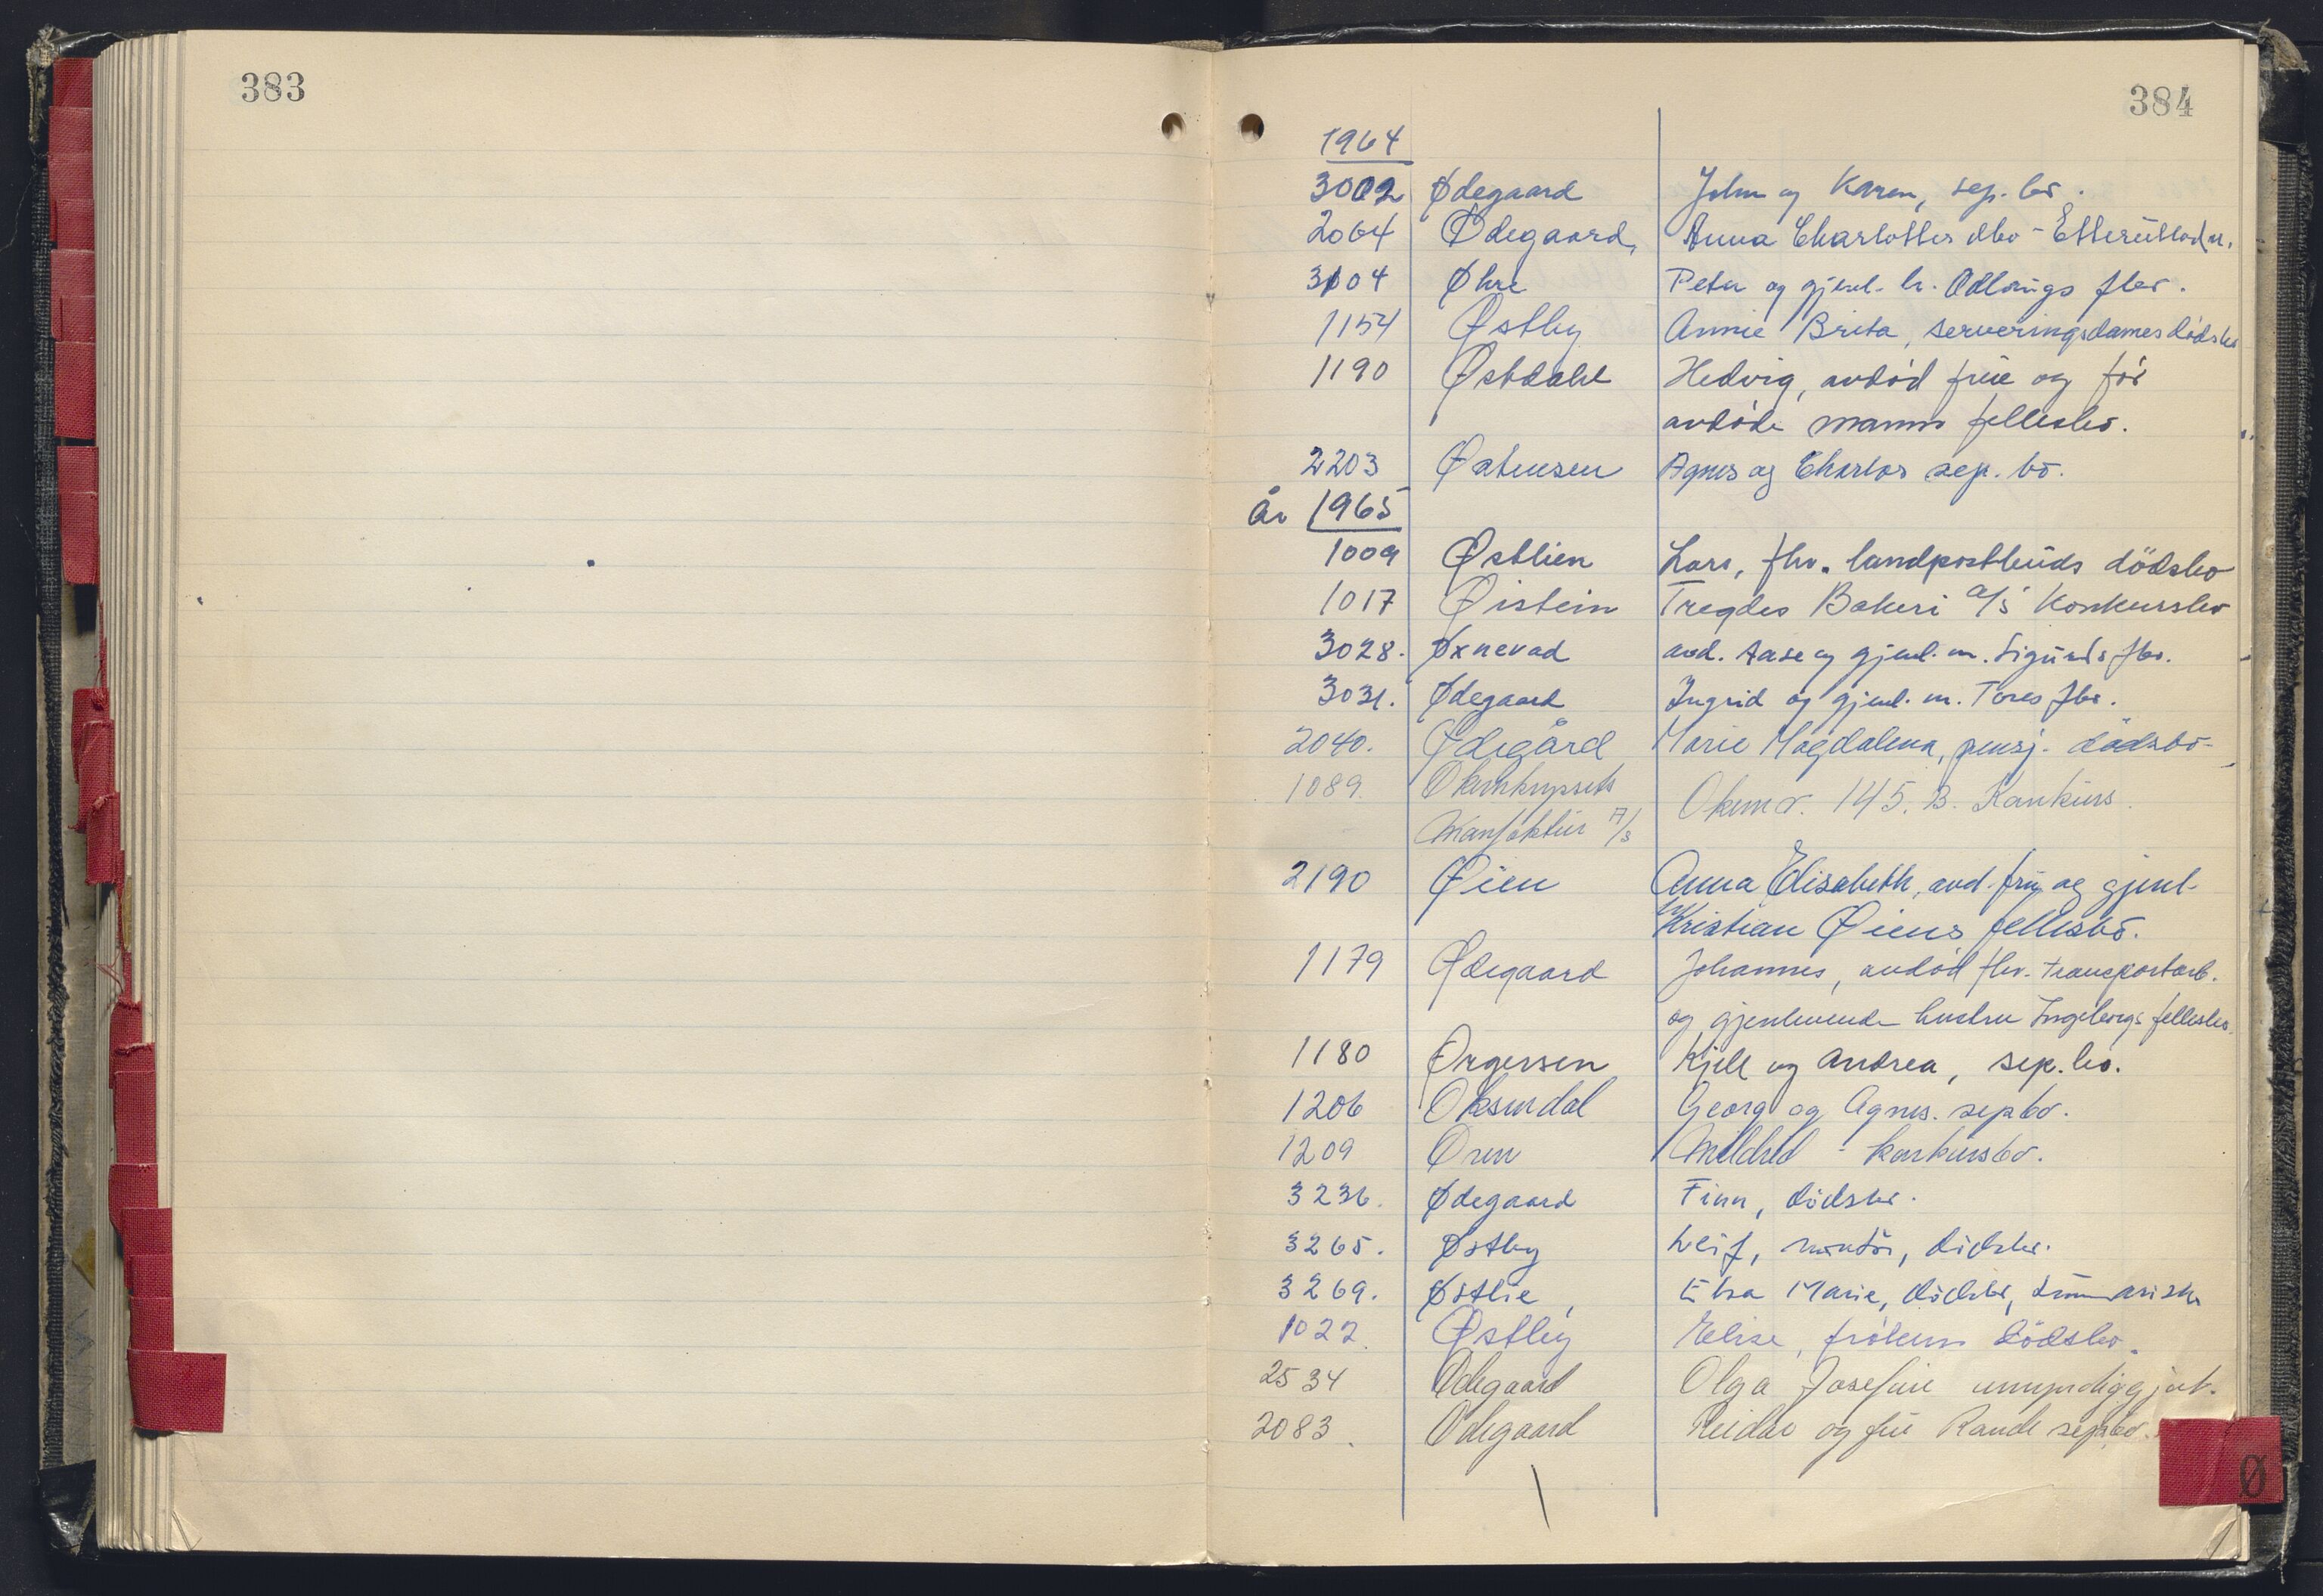 383
384
1964
3002 Ødegaard John og Karen, sep. bo.
2064 Ødegaard, Anna Charlottes dbo - Etterutlodn.
3104 Øhre Peter og gjenl. h. Odlaugs fbo.
1154 Østby Annie Brita, serveringsdames dødsbo
1190 Østdahl Hedvig, avdød frue og før
avdøde manns fellesbo.
2203 Østensen Agnes og Charles sep. bo.
År 1965
1009 Østlien Lars, fhv. landpostbuds dödsbo
1017 Øistein Tregdes Bakeri a/s Konkursbo
3028. Øxnevad avd. Aase og gjenl. m. Sigurds fbo.
3031. Ødegaard Ingrid og gjenl. m. Tores fbo.
2040. Ødegård Marie Magdalena, pensj. dödsbo
1089. Økernkrysset
Manfaktur A/S Økernv. 145. B. Konkurs.
2190 Øien Anna Elisabeth, avd. fru og gjenl.
Kristian Øiens fellesbo.
1179 Ødegaard Johannes, avdød fhv. transportarb.
og gjenlevende hustru Ingeborgs fellesbo.
1180 Ørgersen Kjell og Andrea, sep. bo.
1206 Øksendal Georg og Agnes. sepbo.
1209 Øren Mildred - konkursbo.
3236. Ødegaard Finn, dødsbo.
3265. Østby Leif, montør, dødsbo.
3269. Østlie, Elsa Marie, dødsbo,
1022. Østby Elise, frøken dödsbo.
2534 Ødegaard Olga Josefine umyndiggjort.
2083. Ødegaard Reidar og fru Randi sepbo.
Ø